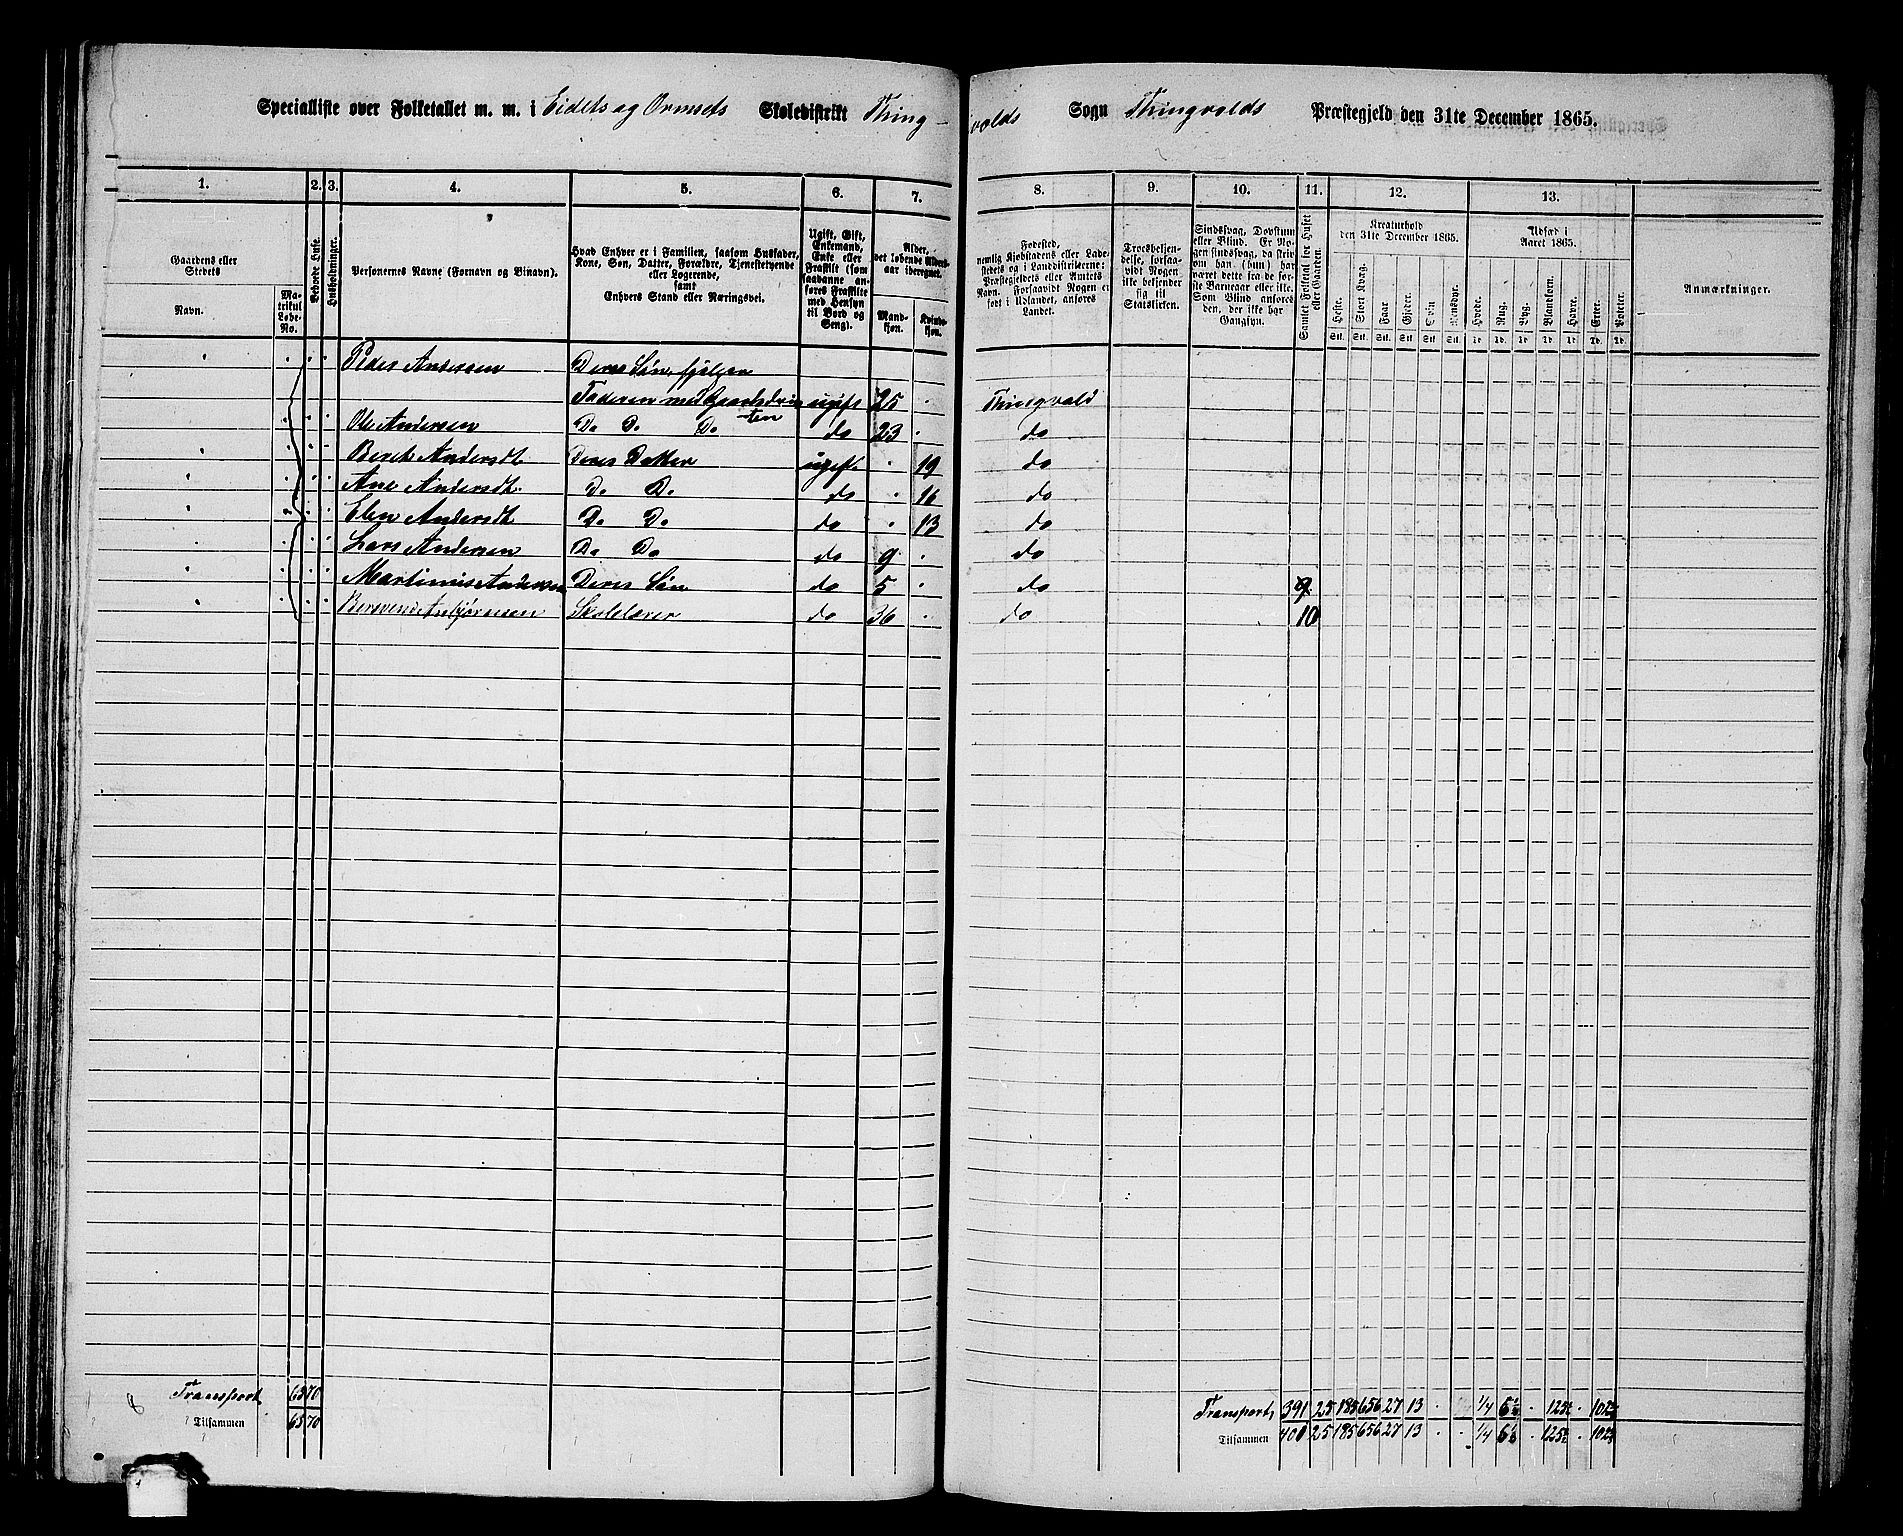 Specialliste over Folketallet m. m. i Eidets og Ormsets Skoledistrikt Thing-
volds Sogn Thingvolds Præstegjeld den 31te December 1865.
1. 2. 3. 4. 5. 6. 7.
8. 9. 10. 11. 12. 13.
Gaardens eller Stedets
Navn.
Matrikul Løbe-No.
Beboede Huse.
Husholdninger.
Personernes Navne (Fornavn og Binavn).
Hvad Enhver er i Familien, saasom Husfader, Kone, Søn, Datter, Forældre, Tjenestetyende eller Logerende, samt Enhvers Stand eller Næringsvei.
Ugift, Gift, Enkemand, Enke eller Fraskilt (som saadanne anføres Fraskilte med Hensyn til Bord og Seng).
Alder, det løbende Aldersaar iberegnet.
Mandkjøn. Kvindekjøn.
Fødested, nemlig Kjøbstadens eller Ladestedets og i Landdistrikterne: Præstegjeldets eller Amtets Navn. Forsaavidt Nogen er født i Udlandet, anføres Landet.
Troesbekjendelse, forsaavidt Nogen ikke bekjender sig til Statskirken.
Sindssvag, Døvstum eller Blind. Er Nogen sindssvag, da skrives om han (hun) har været dette fra de første Barneaar eller ikke. Som Blind anføres den, der ikke har Gangsyn.
Samlet Folketal for Huset eller Gaarden.
Kreaturhold den 31te December 1865.
Heste. Stort Kvæg. Faar. Gjeder. Svin. Rensdyr.
Udsæd i Aaret 1865.
Hvede. Rug. Byg. Blandkorn. Havre. Erter. Poteter.
Anmærkninger.
Peder Andersen Deres Søn, hjelper
Faderen med Gaardsdriften ugift 25 Thingvold
Ole Andersen Do Do Do do 23 do
Berit Andersdt Deres Datter ugift 19 do
Ane Andersdt. Do Do do 16 do
Elen Andersdt Do Do do 13 do
Lars Andersen Do Do do 9 do
Martinus Andersen Deres Søn do 5 do 9
Asbjørnsen Skolelærer do 36 do 10
Transport 65 70
Tilsammen 65 70
Transport 391 25 185 656 27 13 1/4
Tilsammen 400 25 185 656 27 13 1/4